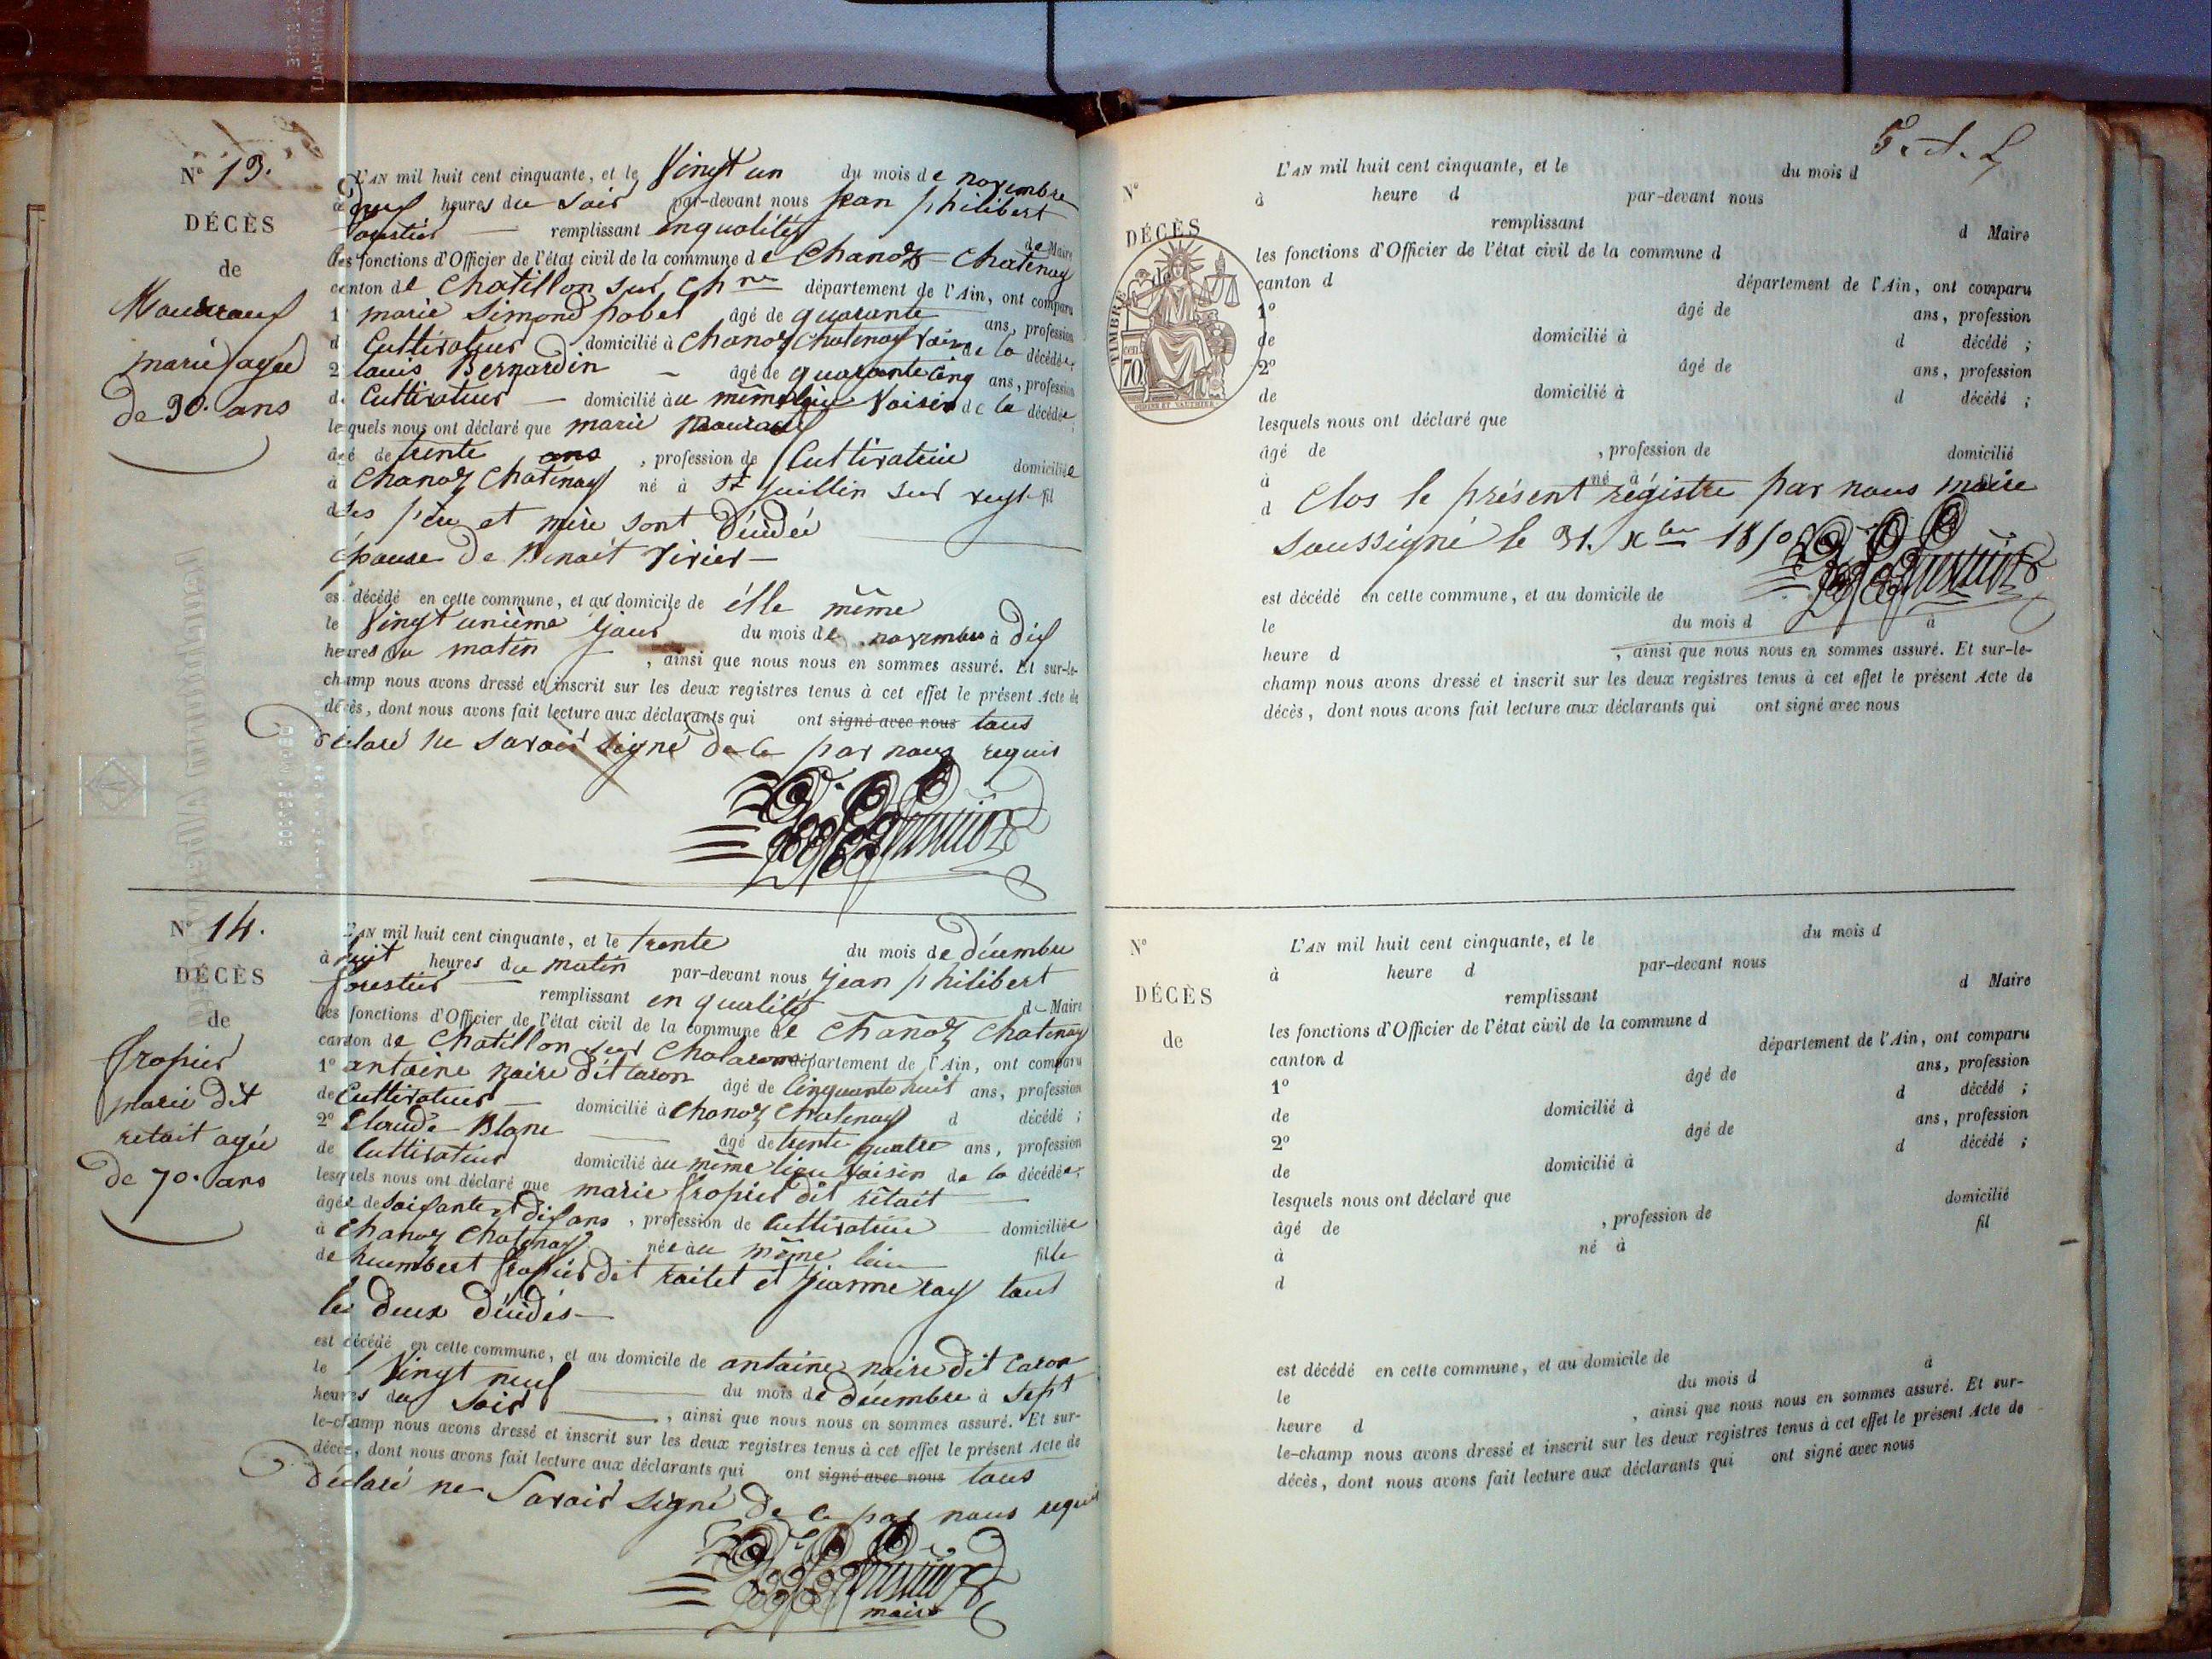 N° 13.
DÉCÈS
de
marie agée
de 30. ans
L'AN mil huit cent cinquante, et le Vingt un du mois de novembre
à heures du soir par-devant nous jean philibert
forestier — remplissant en qualité de Maire
les fonctions d'Officier de l'état civil de la commune de Chanoz Chatenay
canton de Chatillon sur Chne département de l'Ain, ont comparu
1° marie Simond pobel âgé de quarante ans, profession
d Cultivateur domicilié à Chanoz Chatenay voisin de la décédée;
2° louis Bernardin — âgé de quarante cinq ans, profession
de Cultivateur — domicilié au même lieu Voisin de la décédée;
lesquels nous ont déclaré que marie
âgé de trente ans, profession de Cultivatrice domiciliée
à Chanoz Chatenay né à St juillin sur fil
des père et mère sont décédé
épouse de Benoit Virier —
est décédé en cette commune, et au domicile de élle même
le Vingt unième jour du mois de novembre à dix
heures du matin, ainsi que nous nous en sommes assuré. Et sur-le-
champ nous avons dressé et inscrit sur les deux registres tenus à cet effet le présent Acte de
décès, dont nous avons fait lecture aux déclarants qui ont signé avec nous tous
déclaré ne savoir signé de ce par nous requis
N° 14.
DÉCÈS
de
fropier
marie dit
retait agée
de 70. ans
L'AN mil huit cent cinquante, et le trente du mois de décembre
à huit heures du matin par-devant nous jean philibert
forestier — remplissant en qualité de Maire
les fonctions d'Officier de l'état civil de la commune de Chanoz Chatenay
canton de Chatillon sur Chalaronne département de l'Ain, ont comparu
1° antoine noire dit caron âgé de Cinquante huit ans, profession
de Cultivateur — domicilié à Chanoz Chatenay d décédé;
2° Claude Blanc — âgé de trente quatre ans, profession
de Cultivateur domicilié au même lieu Voisin de la décédée;
lesquels nous ont déclaré que marie fropier dit retait
âgée de soixante et dix ans, profession de Cultivatrice domiciliée
à Chanoz Chatenay née au même lieu fille
de humbert fropier dit raitet et jeanne ray tous
les deux décédés —
est décédé en cette commune, et au domicile de antoine noire dit caron
le Vingt neuf — du mois de décembre à sept
heures du soir —, ainsi que nous nous en sommes assuré. Et sur-
le-champ nous avons dressé et inscrit sur les deux registres tenus à cet effet le présent Acte de
décès, dont nous avons fait lecture aux déclarants qui ont signé avec nous tous
déclaré ne Savoir signé de ce par nous requis
maire
N°
DÉCÈS
de
TIMBRE
70 cen
L'AN mil huit cent cinquante, et le du mois d
à heure d par-devant nous
remplissant d Maire
les fonctions d'Officier de l'état civil de la commune d
canton d département de l'Ain, ont comparu
1° âgé de ans, profession
de domicilié à d décédé;
2° âgé de ans, profession
de domicilié à d décédé;
lesquels nous ont déclaré que
âgé de , profession de domicilié
à né à fil
d Clos le présent régistre par nous maire
soussigné le 31. Xbre 1850
est décédé en cette commune, et au domicile de
le du mois d à
heure d , ainsi que nous nous en sommes assuré. Et sur-le-
champ nous avons dressé et inscrit sur les deux registres tenus à cet effet le présent Acte de
décès, dont nous avons fait lecture aux déclarants qui ont signé avec nous
N°
DÉCÈS
de
L'AN mil huit cent cinquante, et le du mois d
à heure d par-devant nous
remplissant d Maire
les fonctions d'Officier de l'état civil de la commune d
canton d département de l'Ain, ont comparu
1° âgé de ans, profession
de domicilié à d décédé;
2° âgé de ans, profession
de domicilié à d décédé;
lesquels nous ont déclaré que
âgé de , profession de domicilié
à né à fil
d
est décédé en cette commune, et au domicile de
le du mois d à
heure d , ainsi que nous nous en sommes assuré. Et sur-
le-champ nous avons dressé et inscrit sur les deux registres tenus à cet effet le présent Acte de
décès, dont nous avons fait lecture aux déclarants qui ont signé avec nous